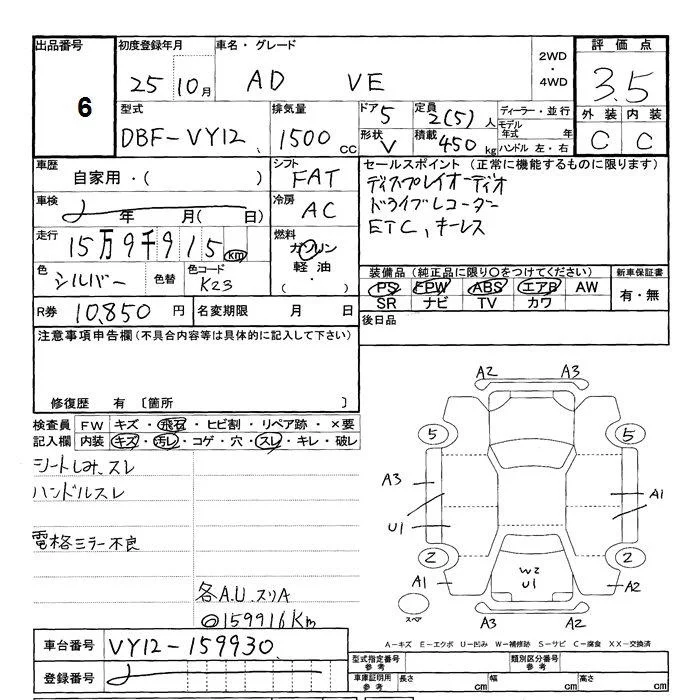 出品番号 初度登録年月 車名・グレード 2WD・4WD 評価点
6 25 10月 AD VE 3.5
型式 排気量 ドア 5 定員 2(5)人 ディーラー・並行 外装 内装
DBF-VY12 1500cc 形状 V 積載 450kg モデル年式 年 ハンドル 左・右 C C
車歴 自家用・( ) シフト FAT セールスポイント (正常に機能するものに限ります)
車検 年 月( 日) 冷房 AC ディスプレイオーディオ
ドライブレコーダー
ETC、キーレス
走行 15万9千915km 燃料 ガソリン 軽油・( )
色 シルバー 色替 色コード K23 装備品 (純正品に限り○をつけてください) 新車保証書
PS FPW ABS エアB AW 有・無
SR ナビ TV カワ
R券 10,850円 名変期限 月 日 後日品
注意事項申告欄(不具合内容等は具体的に記入して下さい)
修復歴 有 〔箇所 〕
検査員 FW キズ・飛石・ヒビ割・リペア跡・×要
記入欄 内装 キズ・汚レ・コゲ・穴・スレ・キレ・破レ
シートしみ、スレ
ハンドルスレ
電格ミラー不良
各A.U.スリA
◎159916Km
A2 A3
5 5
A3 A1
U1
2 2
A1 W2 U1 A2
スペア A3 A2
A-キズ E-エクボ U-凹み W-補修跡 S-サビ C-腐食 XX-交換済
車台番号 VY12-159930
登録番号
型式指定番号 参考 類別区分番号 参考
車庫証明用 参考 長さ cm 幅 cm 高さ cm